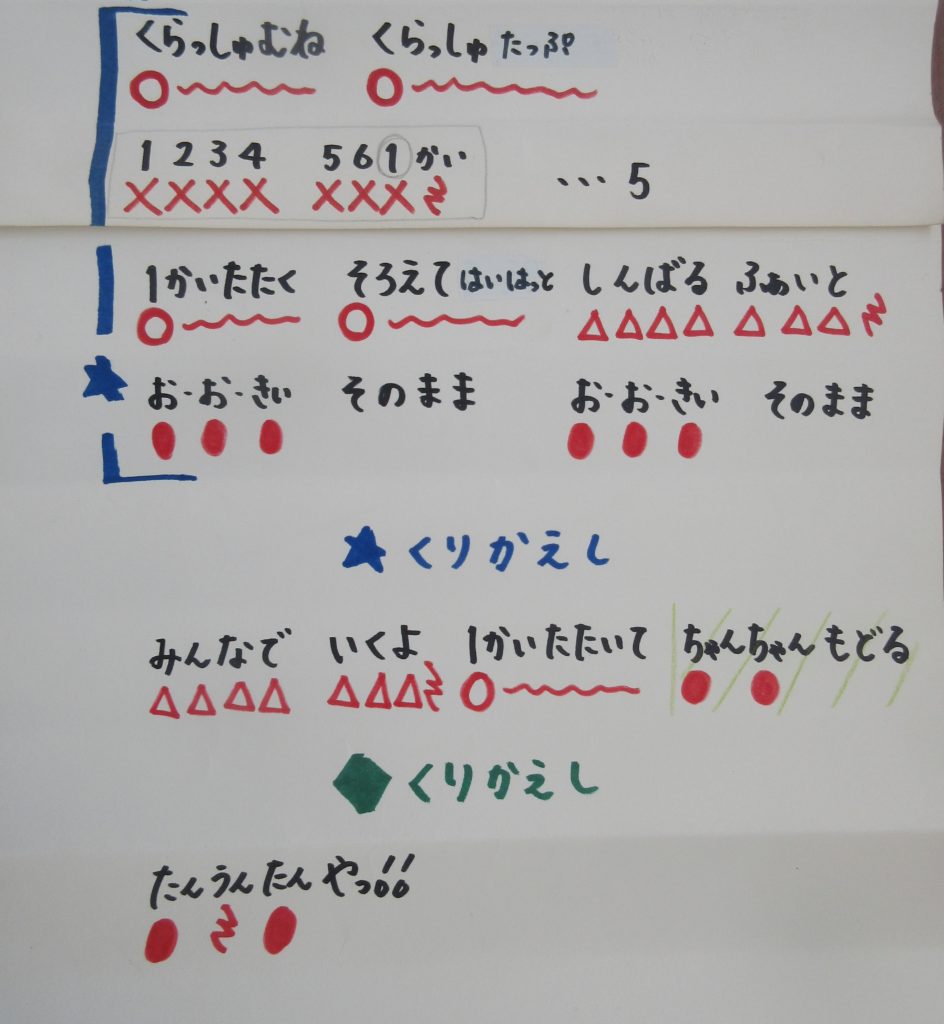 くらっしゅむね くらっしゅたっぷ
1 2 3 4 5 6 1かい …5
1かいたたく そろえてはいはっと しんばる ふぁいと
お・お・きい そのまま お・お・きい そのまま
くりかえし
みんなで いくよ 1かいたたいて ちゃんちゃん もどる
くりかえし
たんうんたん やっ!!